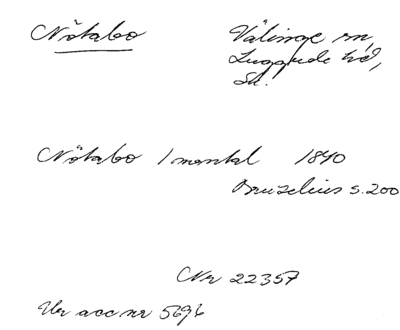 Nötabo Välinge sn,
Luggude hd,
Sk.
Nötabo 1 mantal 1840
Bruzelius s. 200
Nr 22357
Ur acc nr 5696